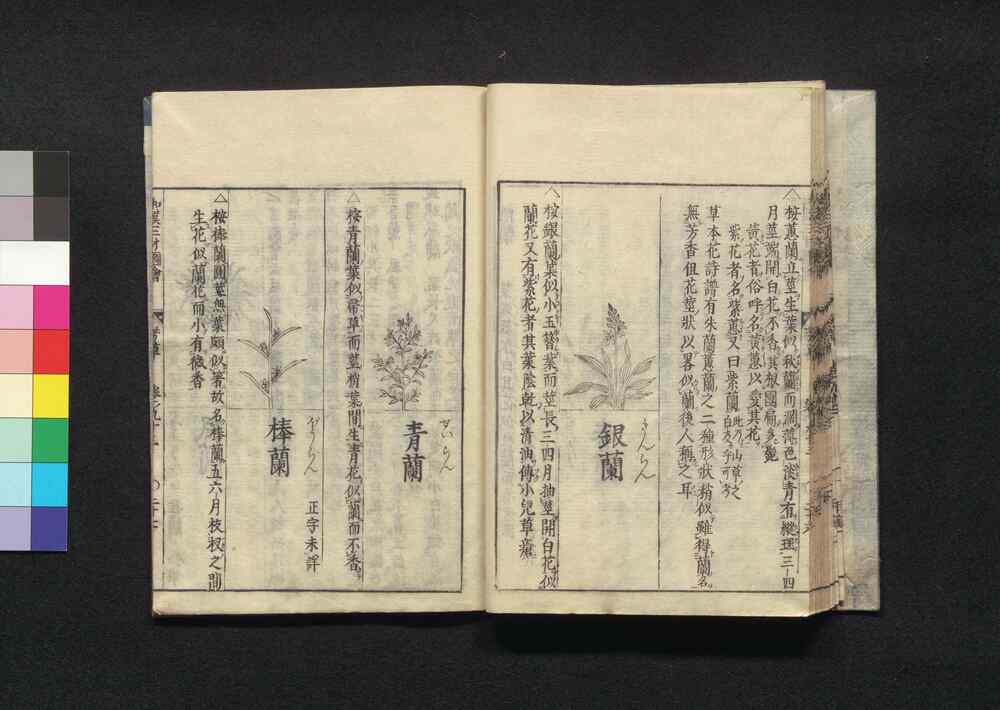 △按蕙蘭立莖生葉似秋蘭而潤薄色淡青有縱理三四
月莖端開白花不香其根圓扁多髭
黄花者俗呼名黄蕙以愛其花
紫花者名紫蕙又曰紫蘭
草本花詩譜有朱蘭蕙蘭之二種形狀稍似雖得蘭名
無芳香但花莖狀以畧似蘭後人稱之耳
銀蘭
ぎんらん
△按銀蘭葉似小玉簪葉而莖長三四月抽莖開白花似
蘭花又有紫花者其葉陰乾以清油傳小兒草瘡
青蘭
せいらん
△按青蘭葉似常草而莖梢葉間生青花似蘭而不香
棒蘭
ぼうらん
正字未詳
△按棒蘭圓莖無葉頗似箸故名棒蘭五六月枝椏之間
生花似蘭花而小有微香
和漢三才圖會